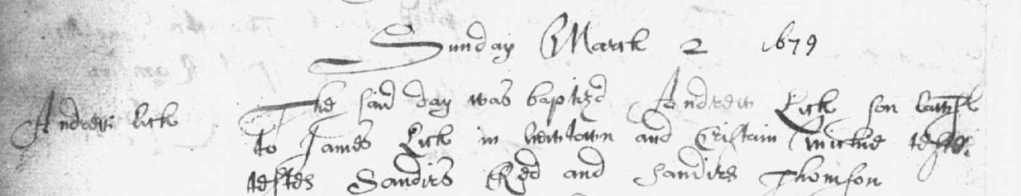 Sunday March 2 1679
Andrew Eick The said day was baptizd Andrew Eick son lawfl
to James Eick in newtown and Cristain Mickie
testes Sanders Reed and Sanders Thomson